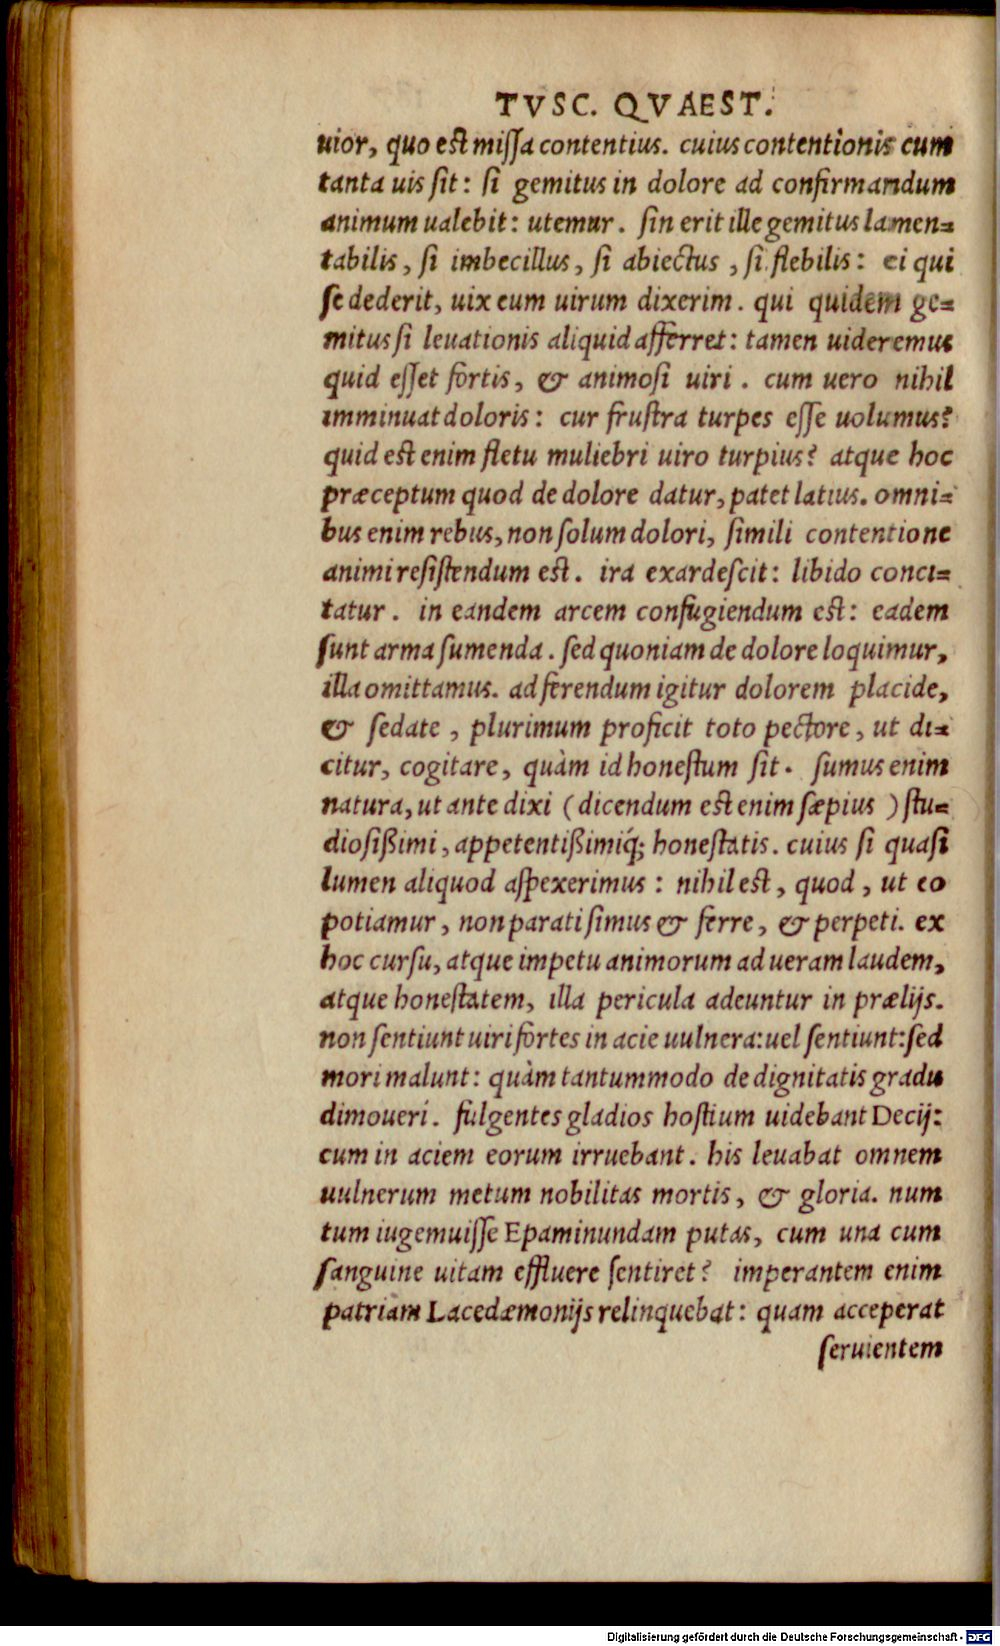 TVSC. QVAEST.
uior, quo est missa contentius. cuius contentionis cum
tanta uis sit: si gemitus in dolore ad confirmandum
animum ualebit: utemur. sin erit ille gemitus lamen=
tabilis, si imbecillus, si abiectus, si flebilis: ei qui
se dederit, uix eum uirum dixerim. qui quidem ge=
mitus si leuationis aliquid afferret: tamen uideremus
quid esset fortis, & animosi uiri. cum uero nihil
imminuat doloris: cur frustra turpes esse uolumus?
quid est enim fletu muliebri uiro turpius? atque hoc
præceptum quod de dolore datur, patet latius. omni=
bus enim rebus, non solum dolori, simili contentione
animi resistendum est. ira exardescit: libido conci=
tatur. in eandem arcem confugiendum est: eadem
sunt arma sumenda. sed quoniam de dolore loquimur,
illa omittamus. ad ferendum igitur dolorem placide,
& sedate, plurimum proficit toto pectore, ut di=
citur, cogitare, quàm id honestum sit. sumus enim
natura, ut ante dixi (dicendum est enim sæpius) stu=
diosißimi, appetentißimiq́; honestatis. cuius si quasi
lumen aliquod aspexerimus: nihil est, quod, ut eo
potiamur, non parati simus & ferre, & perpeti. ex
hoc cursu, atque impetu animorum ad ueram laudem,
atque honestatem, illa pericula adeuntur in prælijs.
non sentiunt uiri fortes in acie uulnera: uel sentiunt: sed
mori malunt: quàm tantummodo de dignitatis gradu
dimoueri. fulgentes gladios hostium uidebant Decij:
cum in aciem eorum irruebant. his leuabat omnem
uulnerum metum nobilitas mortis, & gloria. num
tum iugemuisse Epaminundam putas, cum una cum
sanguine uitam effluere sentiret? imperantem enim
patriam Lacedæmonijs relinquebat: quam acceperat
seruientem
Digitalisierung gefördert durch die Deutsche Forschungsgemeinschaft - DFG